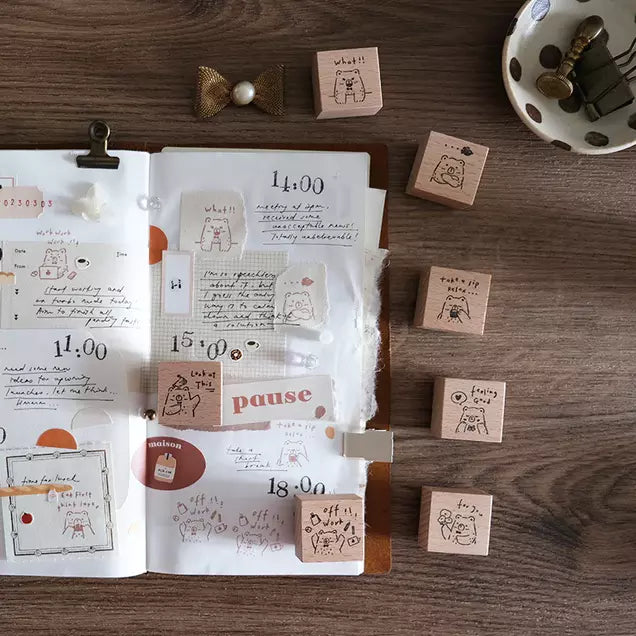 20230303
work work
work it
Date
Time
start working and
Aim to finish all
11:00
need some new
ideas for upcoming
launches, let me think...
Hmmmm...
time for lunch
Eat First
think later
14:00
meeting at 2pm,
received some
unacceptable news!
Totally unbelievable!
what!!
I'm so speechless
about it, but
I guess the only
down and think of
a solution
15:00
Look at
This
pause
maison
take a sip
relax...
take a
short
break
18:00
off
work
off
work
off
work
what!!
...
take a sip
relax...
feeling
Good
for you